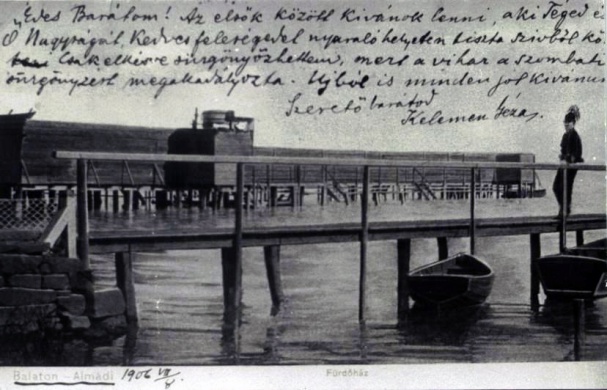 „Édes Barátom! Az elsők között kivánok lenni, a ki Téged és
Ő Nagyságát, kedves feleségedet nyaralóhelyeten tiszta szivből kö
Csak elkésve sürgönyözhettem, mert a vihar a szombati
sürgönyzést megakadályozta. Ujból is minden jót kivánva
Szerető barátod
Kelemen Géza
Balaton - Almádi 1906 VII/
Fürdőház